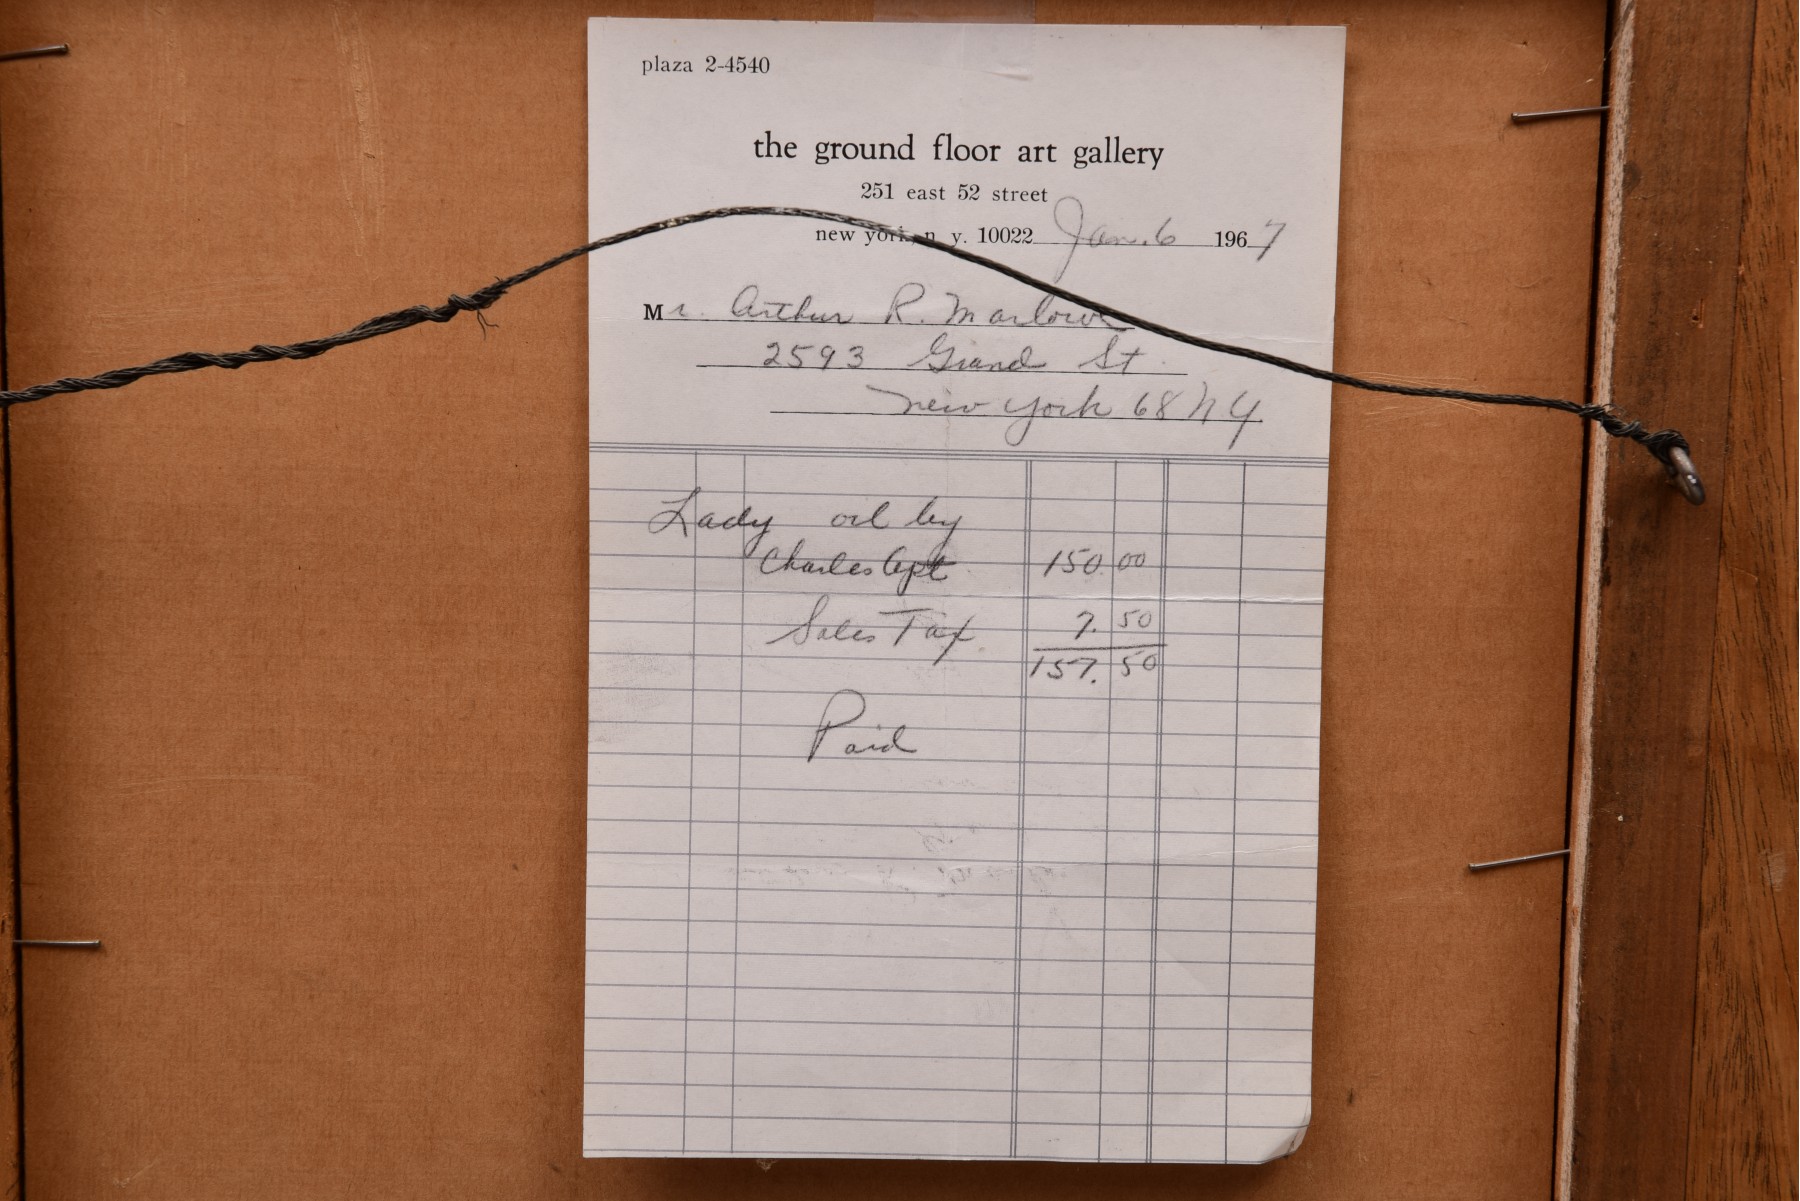 plaza 2-4540
the ground floor art gallery
251 east 52 street
new york, n. y. 10022 Jan. 6 1967
Mr. Arthur R. Marlowe
2593 Grand St.
New York 68 NY
Lady oil by
Charles Apt 150.00
Sales Tax. 7.50
157.50
Paid